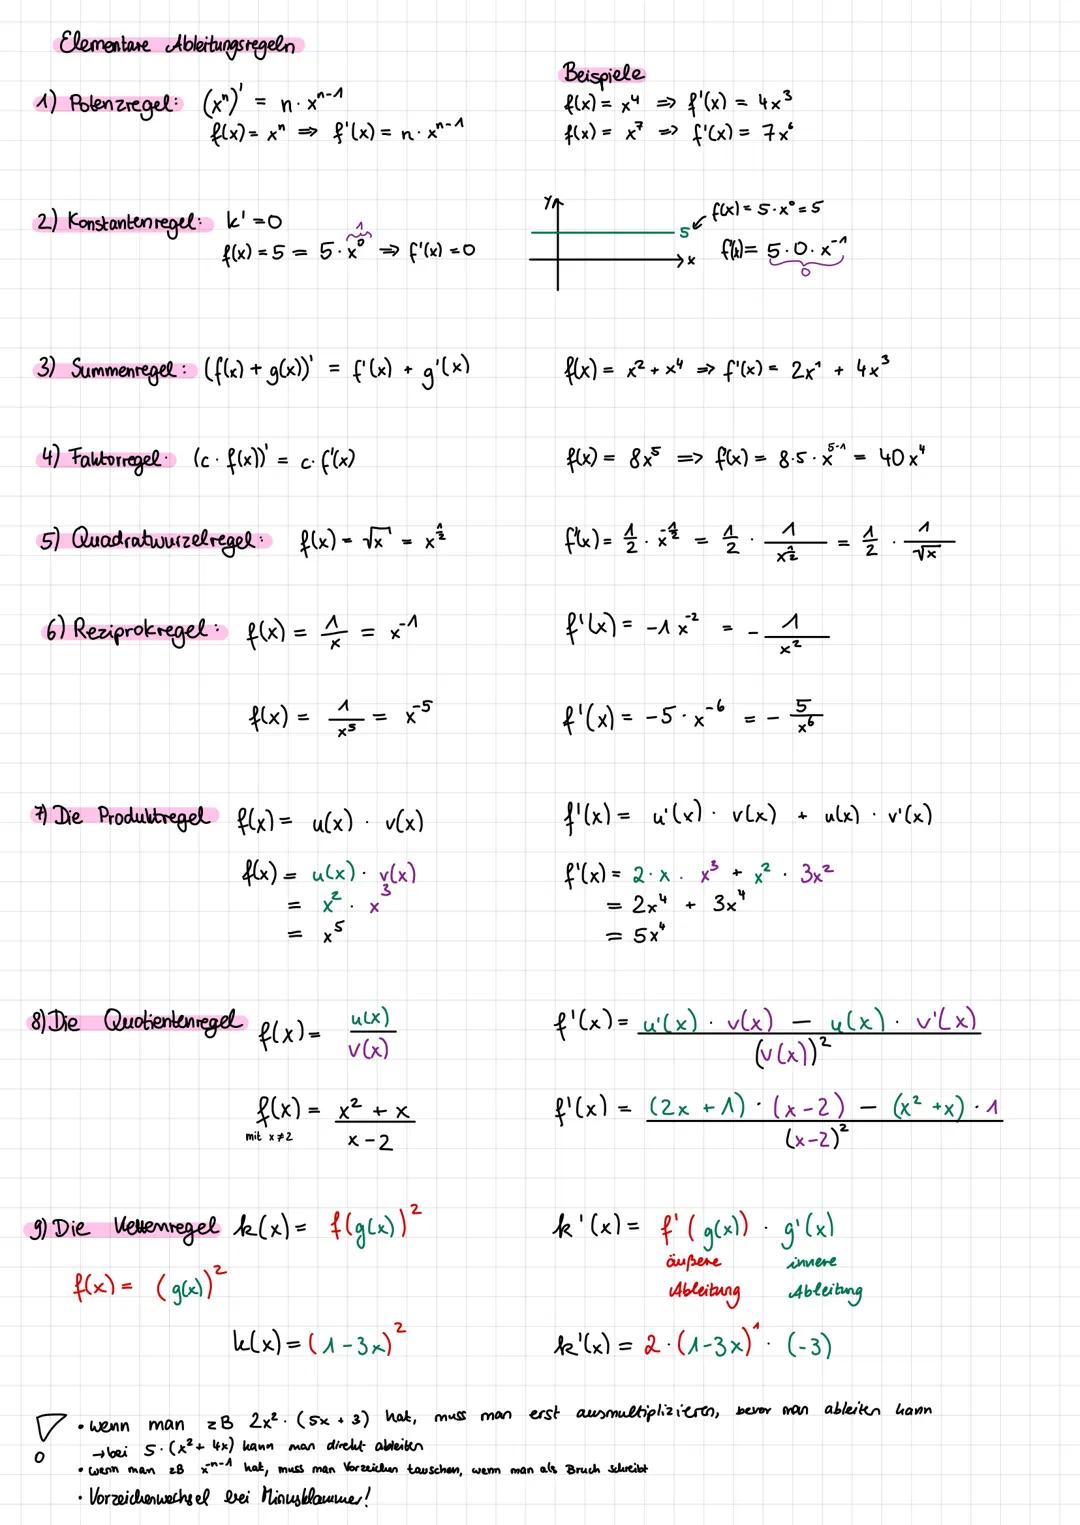 Elementare Ableitungsregeln
Beispiele
1) Potenzregel: (xⁿ)' = n · xⁿ⁻¹
f(x) = xⁿ ⇒ f'(x) = n · xⁿ⁻¹
f(x) = x⁴ ⇒ f'(x) = 4x³
f(x) = x⁷ ⇒ f'(x) = 7x⁶
2) Konstantenregel: k' = 0
f(x) = 5 = 5 · x⁰ ⇒ f'(x) = 0
1
y
x
5
f(x) = 5 · x⁰ = 5
f'(x) = 5 · 0 · x⁻¹
0
3) Summenregel: (f(x) + g(x))' = f'(x) + g'(x)
f(x) = x² + x⁴ ⇒ f'(x) = 2x¹ + 4x³
4) Faktorregel: (c · f(x))' = c · f'(x)
f(x) = 8x⁵ ⇒ f(x) = 8·5 · x⁵⁻¹ = 40x⁴
5) Quadratwurzelregel: f(x) = √x = x^(1/2)
f'(x) = 1/2 · x^(-1/2) = 1/2 · 1/x^(1/2) = 1/2 · 1/√x
6) Reziprokregel: f(x) = 1/x = x⁻¹
f'(x) = -1x⁻² = - 1/x²
f(x) = 1/x⁵ = x⁻⁵
f'(x) = -5 · x⁻⁶ = - 5/x⁶
7) Die Produktregel f(x) = u(x) · v(x)
f'(x) = u'(x) · v(x) + u(x) · v'(x)
f(x) = u(x) · v(x)
= x² · x³
= x⁵
f'(x) = 2 · x · x³ + x² · 3x²
= 2x⁴ + 3x⁴
= 5x⁴
8) Die Quotientenregel f(x) = u(x)/v(x)
f'(x) = (u'(x) · v(x) − u(x) · v'(x))/(v(x))²
f(x) = (x² + x)/(x - 2)
mit x≠2
f'(x) = ((2x + 1) · (x - 2) − (x² + x) · 1)/(x-2)²
9) Die Kettenregel k(x) = f(g(x))²
k'(x) = f'(g(x)) · g'(x)
äußere innere
Ableitung Ableitung
f(x) = (g(x))²
k(x) = (1 - 3x)²
k'(x) = 2 · (1-3x)¹ · (-3)
• wenn man zB 2x² · (5x + 3) hat, muss man erst ausmultiplizieren, bevor man ableiten kann
→ bei 5 · (x² + 4x) kann man direkt ableiten
• wenn man zB x⁻ⁿ⁻¹ hat, muss man Vorzeichen tauschen, wenn man als Bruch schreibt
• Vorzeichenwechsel bei Minusklammer!